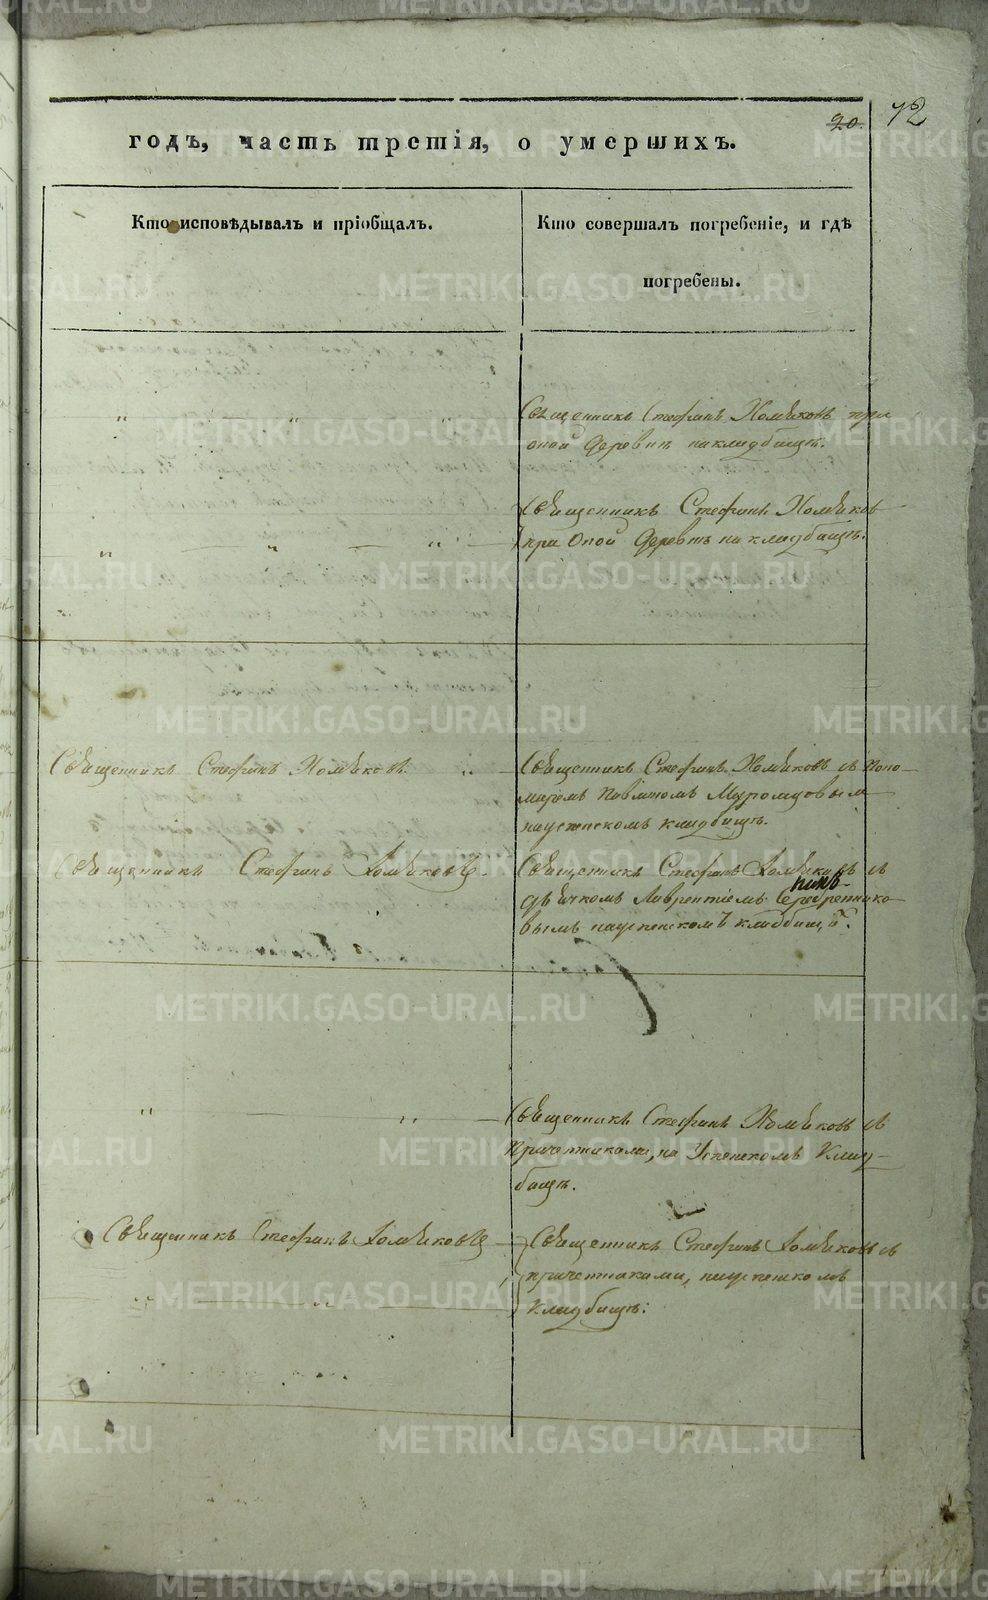 20. 72
годъ, часть третія, о умершихъ.
Кто исповѣдывалъ и пріобщалъ.
Кто совершалъ погребеніе, и гдѣ
погребены.
" " "
Священникъ Стефанъ Хомяковъ при
оной деревнѣ на кладбищѣ.
Священникъ Стефанъ Хомяков
" " "
при оной деревнѣ на кладбищѣ.
Священникъ Стефанъ Хомяковъ. "
Священникъ Стефанъ Хомяковъ съ поно-
маремъ Павломъ Муромцовым
на успенскомъ кладбищѣ.
Священникъ Стефанъ Хомяковъ.
Священникъ Стефанъ Хомяковъ съ
дьячкомъ Лаврентіемъ
вымъ на успенскомъ кладбищѣ.
" "
Священникъ Стефанъ Хомяковъ съ
Причетниками, на Успенскомъ Клад-
бищѣ.
Священникъ Стефанъ Хомяковъ
Священникъ Стефанъ Хомяковъ съ
причетниками, на успенскомъ
" "
Кладбищѣ:
METRIKI.GASO-URAL.RU